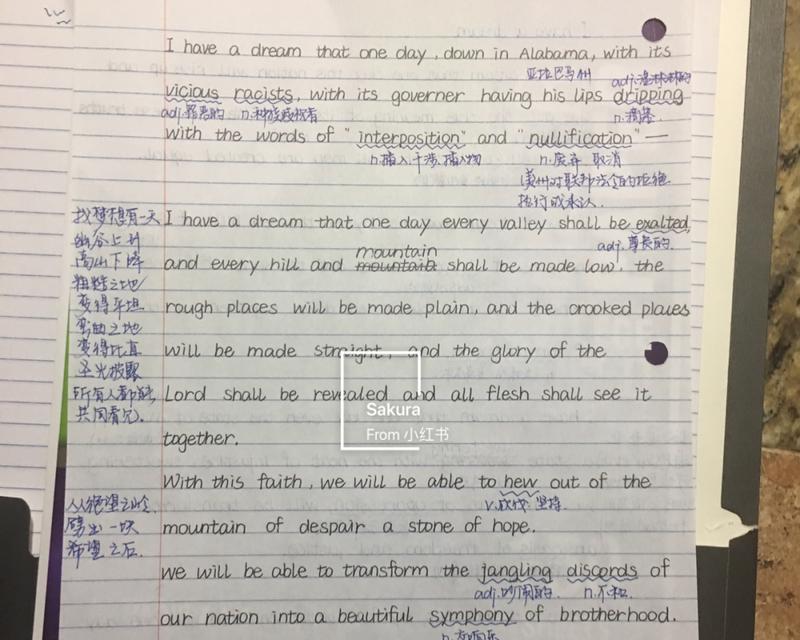 I have a dream that one day, down in Alabama, with its
亚拉巴马州 adj.湿淋淋的
vicious racists, with its governer having his lips dripping
adj.罪恶的 n.种族歧视者 n.滴落
with the words of "interposition" and "nullification" —
n.插入.干涉.插入物 n.废弃 取消
(美州对联邦法令的拒绝
执行或承认.
找梦想有一天 I have a dream that one day every valley shall be exalted,
幽谷上升 adj.尊长的.
mountain
高山下降 and every hill and mountain shall be made low, the
粗糙之地
变得平坦 rough places will be made plain, and the crooked places
弯曲之地
变得比直 will be made straight, and the glory of the
圣光披露
所有人都能 Lord shall be revealed and all flesh shall see it
共同看见.
together.
With this faith, we will be able to hew out of the
从绝望之岭 v.砍伐. 坚持.
劈出一块 mountain of despair a stone of hope.
希望之石.
we will be able to transform the jangling discords of
adj.吵闹的. n.不和.
our nation into a beautiful symphony of brotherhood.
Sakura
From 小红书